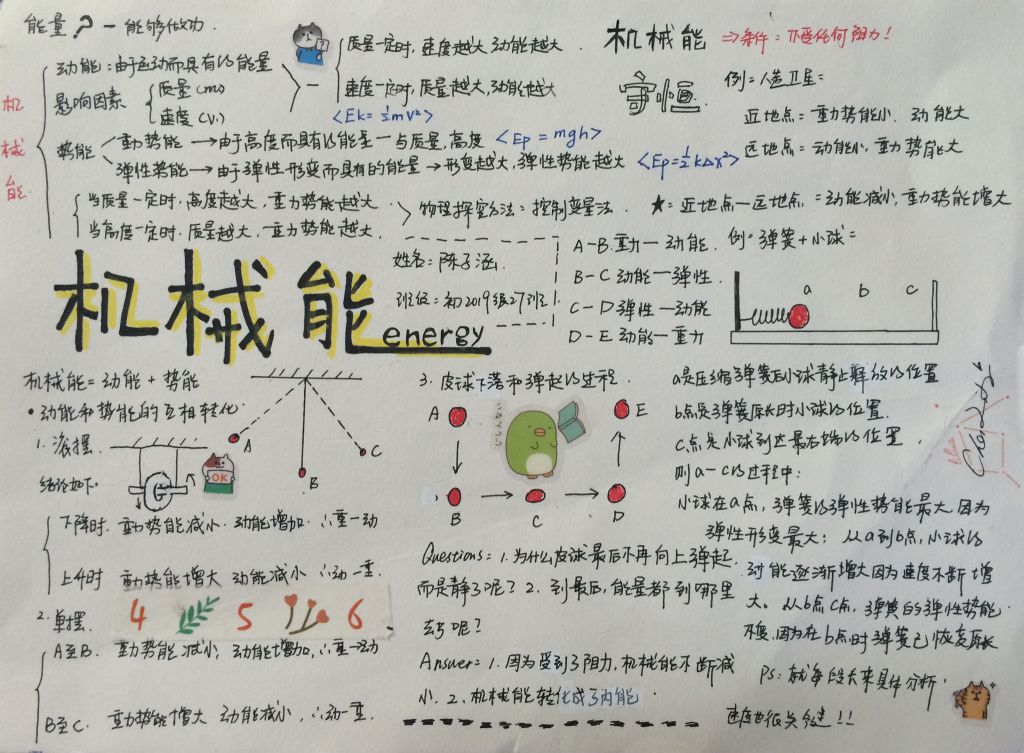 能量？— 能够做功.
机械能
动能：由于运动而具有的能量
影响因素
质量 (m)
速度 (v)
质量一定时，速度越大，动能越大.
速度一定时，质量越大，动能越大
<Ek=½mv²>
势能
重力势能 → 由于高度而具有的能量 — 与质量，高度 <Ep = mgh>
弹性势能 → 由于弹性形变而具有的能量 → 形变越大，弹性势能越大 <Ep=½kΔx²>
当质量一定时，高度越大，重力势能越大.
当高度一定时.质量越大，重力势能越大.
物理探究方法：控制变量法.
机械能 ⇒条件：不受任何阻力！
守恒
例：人造卫星：
近地点：重力势能小. 动能大
远地点：动能小，重力势能大
★：近地点—远地点：动能减小，重力势能增大
机械能
energy
姓名：陈子涵.
班级：初2019级27班
A-B.重力—动能.
B-C 动能—弹性.
C-D 弹性—动能
D-E 动能—重力
例：弹簧+小球：
a b c
机械能=动能+势能
• 动能和势能的互相转化.
1. 滚摆.
结论如下：
OK
A
B
C
下降时. 重力势能减小. 动能增加. ∴重—动
上升时 重力势能增大 动能减小 ∴动—重.
2. 单摆.
4 5 6
A至B. 重力势能减小，动能增加，∴重—动
B至C. 重力势能增大 动能减小，∴动—重.
3. 皮球下落和弹起的过程.
A E
B C D
Questions：1. 为什么皮球最后不再向上弹起.
而是静了呢？2. 到最后，能量都到哪里
去了呢？
Answer：1. 因为受到了阻力，机械能不断减
小. 2. 机械能转化成了内能.
a是压缩弹簧后小球静止释放的位置
b点是弹簧原长时小球的位置.
c点是小球到达最右端的位置.
则a-c的过程中：
小球在a点，弹簧的弹性势能最大因为
弹性形变最大；从a到b点，小球的
动能逐渐增大因为速度不断增
大。从b点c点，弹簧的弹性势能
不变，因为在b点时弹簧已恢复原长
Ps：就每段来具体分析.
速度也很关键！！